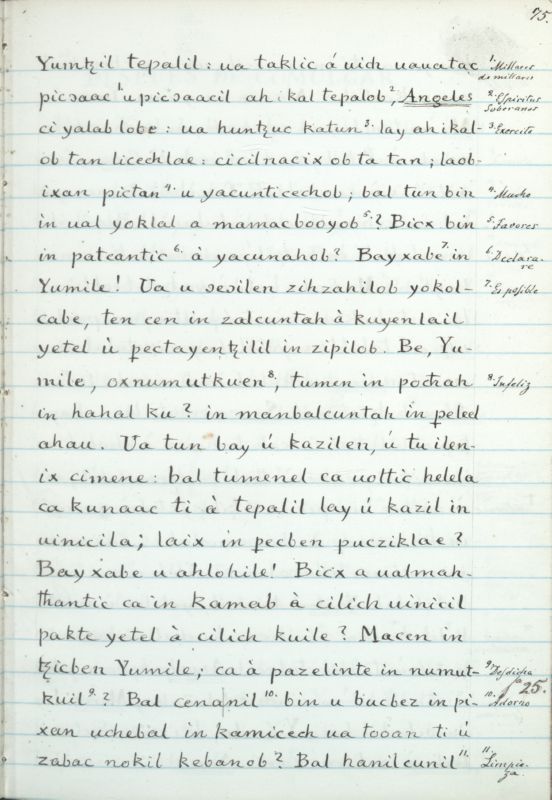 75.
Yumꜩil tepalil: ua taklic á uich uauatac
picɔaac 1. u picɔaacil ah ikal tepalob 2, Angeles
ci yalab lobe: ua hunꜩuc katun 3. lay ah ikal-
ob tan licech lae: cicilnacix ob ta tan; laob-
ixan pictan 4. u yacunticechob; bal tun bin
in ual yoklal a mamacbooyob 5.? Bicx bin
in patcantic 6. à yacunahob? Bay xabe 7. in
Yumile! Ua u ɔeɔilen zihzahilob yokol-
cabe, ten cen in zalcuntah à kuyenlail
yetel ù pectayenꜩilil in zipilob. Be, Yu-
mile, oxnumutkuen 8., tumen in pochah
in hahal ku? in manbalcuntah in peled
ahau. Ua tun bay ú kazilen, ú tu ilen-
ix cimene: bal tumenel ca uoltic helela
ca kunaac ti à tepalil lay ú kazil in
uinicila; laix in pecben pucziklae?
Bay xabe u ahlohile! Bicx a ualmah-
thantic ca in kamab à cilich uinicil
pakte yetel à cilich kuile? Macen in
ꜩicben Yumile; ca à pazelinte in numut-
kuil 9.? Bal cenanil 10. bin u bucbez in pi-
xan uchebal in kamicech ua tooan ti ú
zabac nokil kebanob? Bal hanilcunil 11.
1. Millares
de millares
2. Espiritus
Soberanos
3. Exercito
4. Mucho
5. Favores
6. Declara-
re
7. Es posible
8. Infeliz
9. Desdicha
fa 25.
10. Adorno
11.
Limpie-
za.